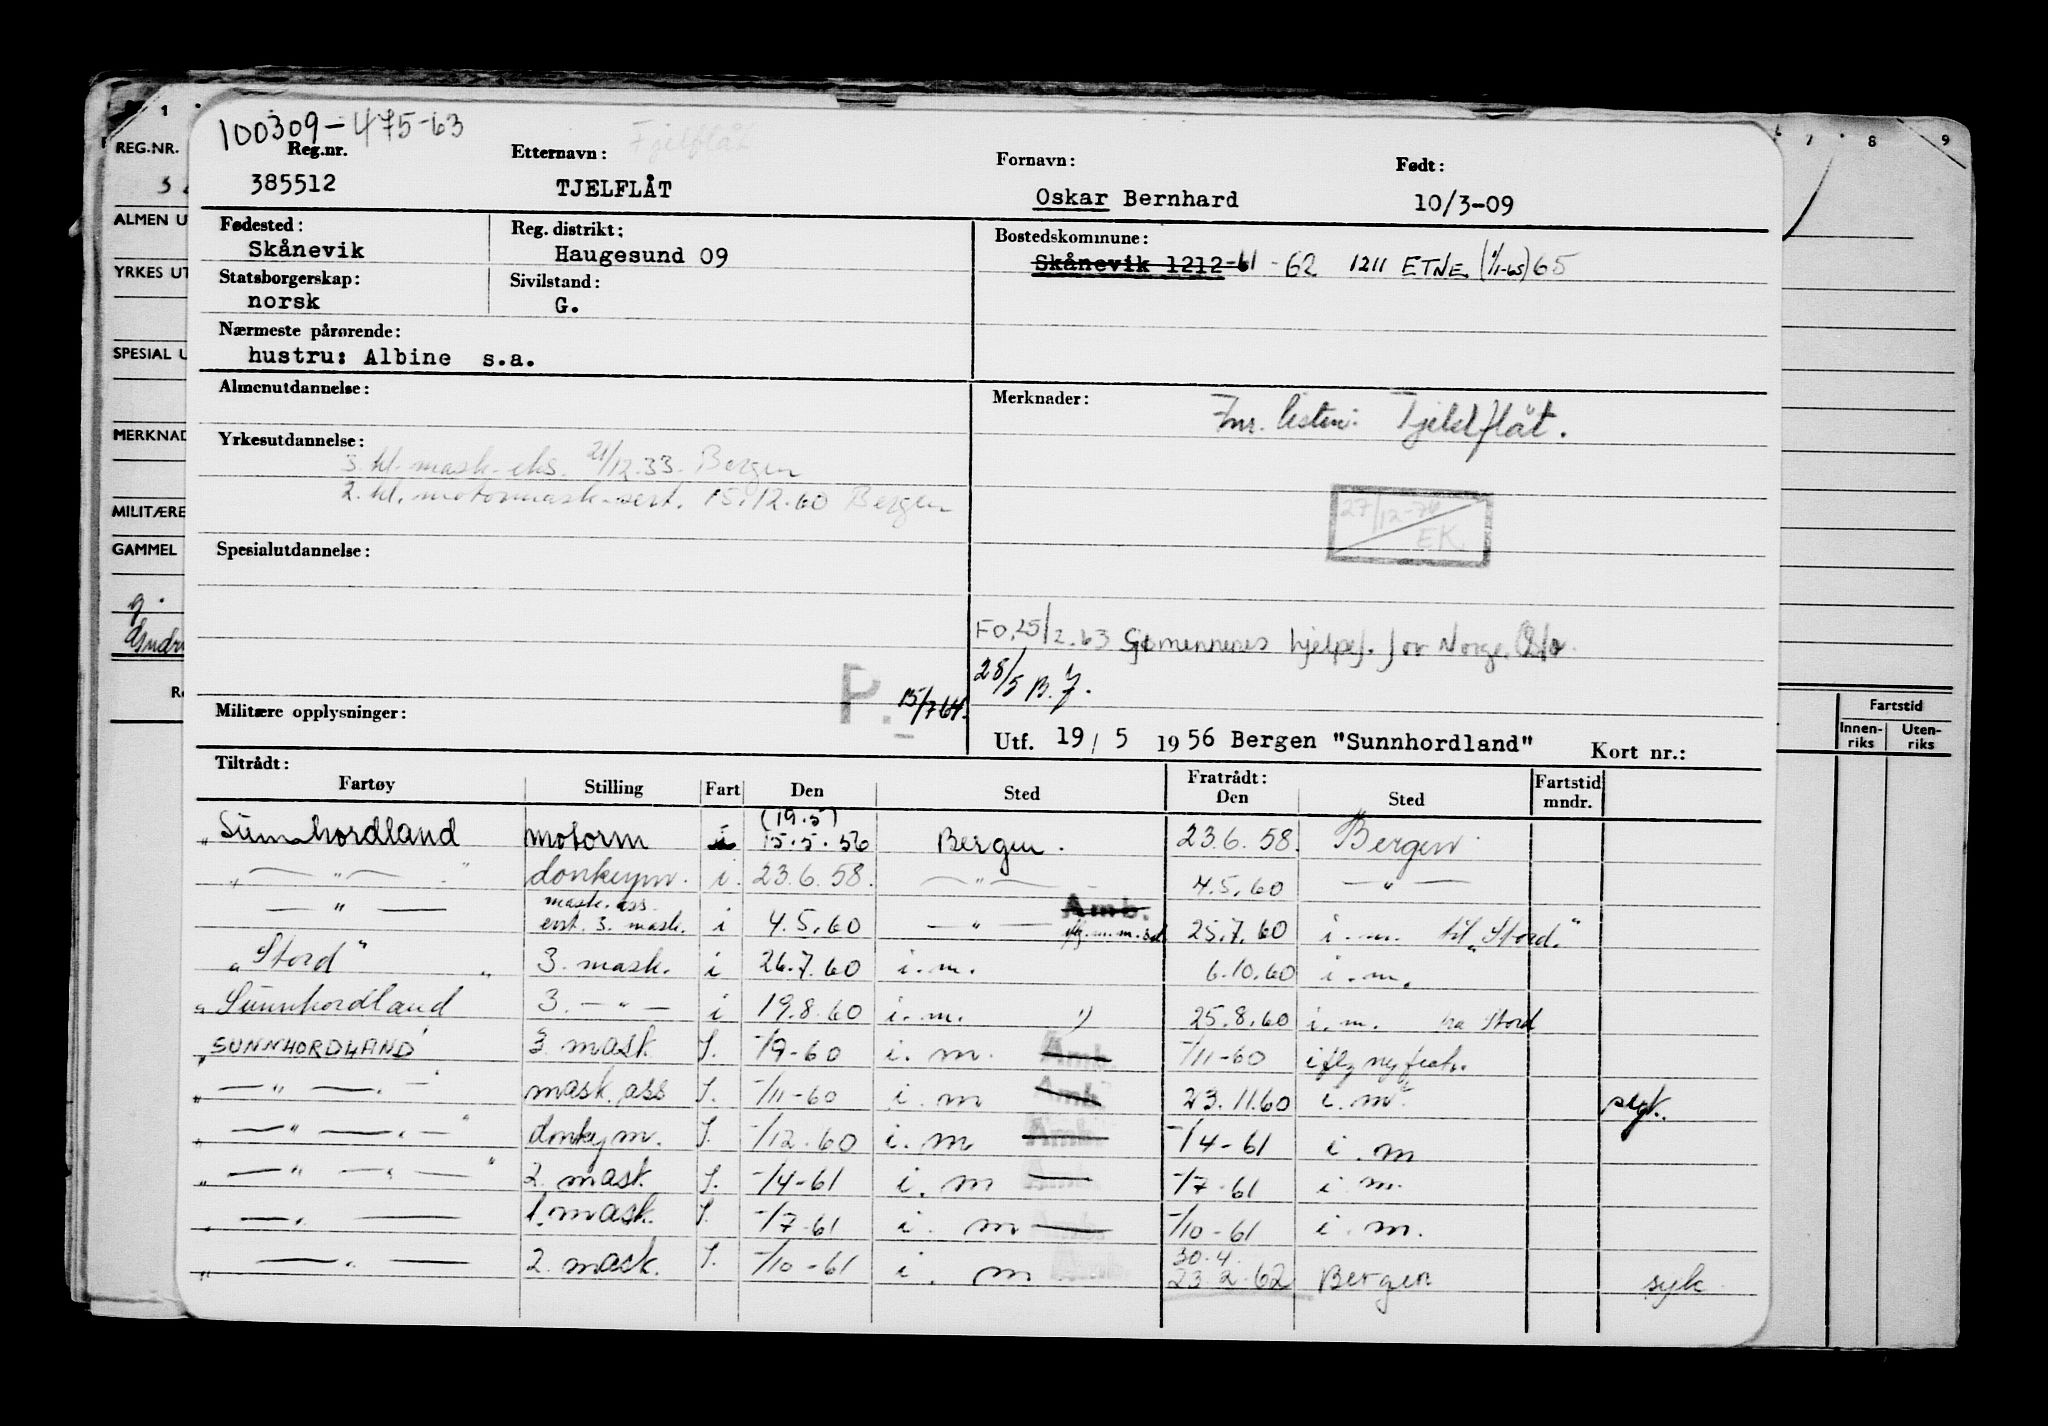 100309-475-63 Fjelflåt
Reg.nr. Etternavn: Fornavn: Født:
385512 TJELFLÅT Oskar Bernhard 10/3-09
Fødested: Reg. distrikt: Bostedskommune:
Skånevik Haugesund 09 Skånevik 1212-61 -62 1211 ETNE (1/1-65) 65
Statsborgerskap: Sivilstand:
norsk G.
Nærmeste pårørende:
hustru: Albine s.a.
Almenutdannelse: Merknader: Fnr. listen: Tjeldflåt.
Yrkesutdannelse:
3. kl. mask-eks. 21/12.33. Bergen
2. kl. motormask.sert. 15.12.60 Bergen
27/12-70 EK.
Spesialutdannelse:
FO. 25/2.63 Sjømennenes hjelpef. for Norge. Oslo.
28/5 B.J.
P. 15/7 64.
Militære opplysninger:
Utf. 19 / 5 19 56 Bergen "Sunnhordland" Kort nr.:
Tiltrådt: Fratrådt: Fartstid
Fartøy Stilling Fart Den Sted Den Sted mndr.
(19.5)
„Sunnhordland motorm i 15.5.56 Bergen. 23.6.58. Bergen
„ — " — " donkeym. i. 23.6.58. — " — 4.5.60 — " —
mask. ass. Amb.
— " — evt. 3. mask. i 4.5.60 — " — 25.7.60 i.m. til „Stord."
„Stord" 3. mask. i 26.7.60 i.m. 6.10.60 i.m.
„Sunnhordland 3. — " — i 19.8.60 i.m. 25.8.60 i.m. fra Stord
„SUNNHORDLAND 3. mask I. -/9-60 i.m. Amb. -/11-60 i flg ny frat.
„ — " — mask. ass I. -/11-60 i.m Amb. 23.11.60 i.m.
„ — " — " donkym. I. -/12-60 i.m Amb. -/4-61 i.m
„ — " — " 2. mask. I. -/4-61 i.m Amb. -/7-61 i.m.
„ — " — 1. mask. I. -/7-61 i.m Amb. -/10-61 i.m.
30.4.
„ — " — 2. mask. I. -/10-61 i.m Amb. 23.2.62 Bergen syk
1 7 8 9
REG.NR.
ALMEN U
YRKES UT
SPESIAL U
MERKNAD
MILITÆRE
GAMMEL
g.
Gudr
Fartstid
Innen-riks Uten-riks